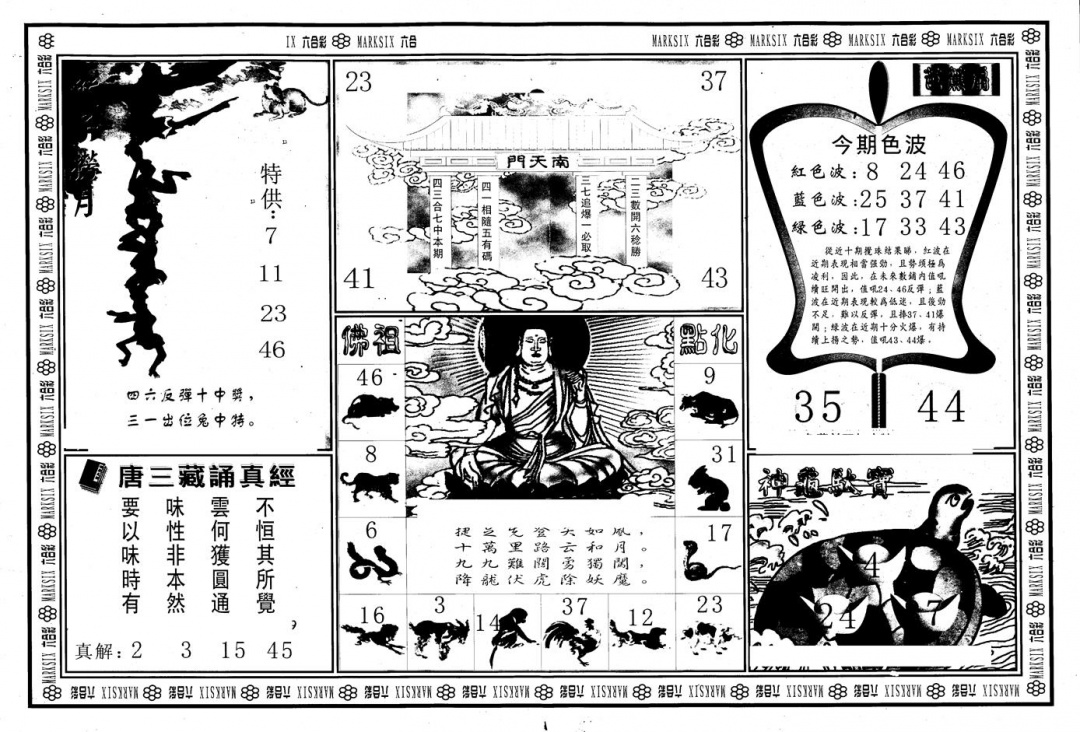 IX 六合彩 MARKSIX 六合
MARKSIX 六合彩 MARKSIX 六合彩 MARKSIX 六合彩 MARKSIX 六合彩
月
特供：
7
11
23
46
四六反彈十中獎，
三一出位兔中特。
23
37
南天門
四三合七中本期
四一相隨五有碼
三七追爆一必取
二三數開六稔勝
41
43
今期色波
紅色波：8 24 46
藍色波：25 37 41
綠色波：17 33 43
從近十期攪珠結果睇，紅波在
近期表現相當强勁，且勢頭極為
凌利，因此，在未來數鋪內值吼
續旺開出，值吼24、46反彈；藍
波在近期表現較爲低迷，且後勁
不足，難以反彈，且捧37、41爆
開；綠波在近期十分火爆，有持
續上揚之勢，值吼43、44爆。
35
44
佛祖
點化
46
9
8
31
6
17
16
3
14
37
12
23
唐三藏誦真經
不恒其所覺
雲何獲圓通
味性非本然
要以味時有
真解：2 3 15 45
神龜馱寶
4
24
7